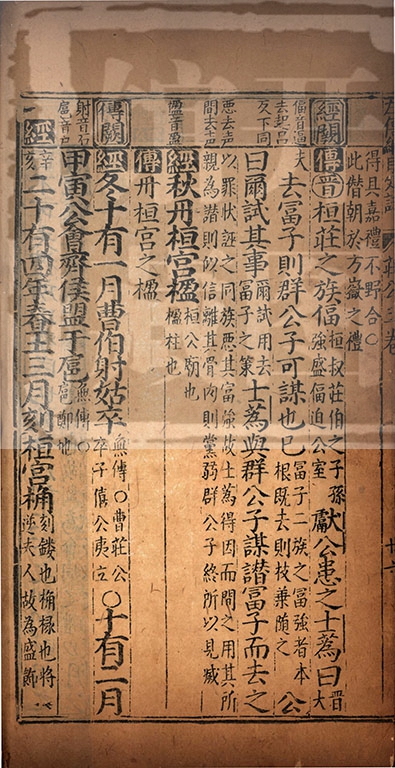 得具嘉禮不野合〇
此偕朝於方嶽之禮
經闕 傳 晉桓莊之族偪 桓叔莊伯之子孫強盛偪迫公室 獻公患之士蔿曰 晉大
偪音逼去起呂反下同
夫 去冨子則群公子可謀也已 冨子二族之冨強者本根既去則枝葉隨之 公
曰爾試其事 爾試用去冨子之策 士蔿與群公子謀譖冨子而去之
惡去声間去声
以罪狀誣之同族惡其冨強故士蔿得因而間之用其所
親為譖則似信離其骨肉則黨弱群公子終所以見滅
楹音盈
經秋丹桓宮楹 桓公廟也楹柱也
傳丹桓宮之楹
傳闕 經冬十有一月曹伯射姑卒 無傳〇曹莊公卒子僖公夷立 〇十有二月
扈音户
甲寅公會齊侯盟于扈 無傳〇扈鄭地
經 二十有四年春王三月刻桓宮桷 刻鏤也桷椽也將逆夫人故為盛飾